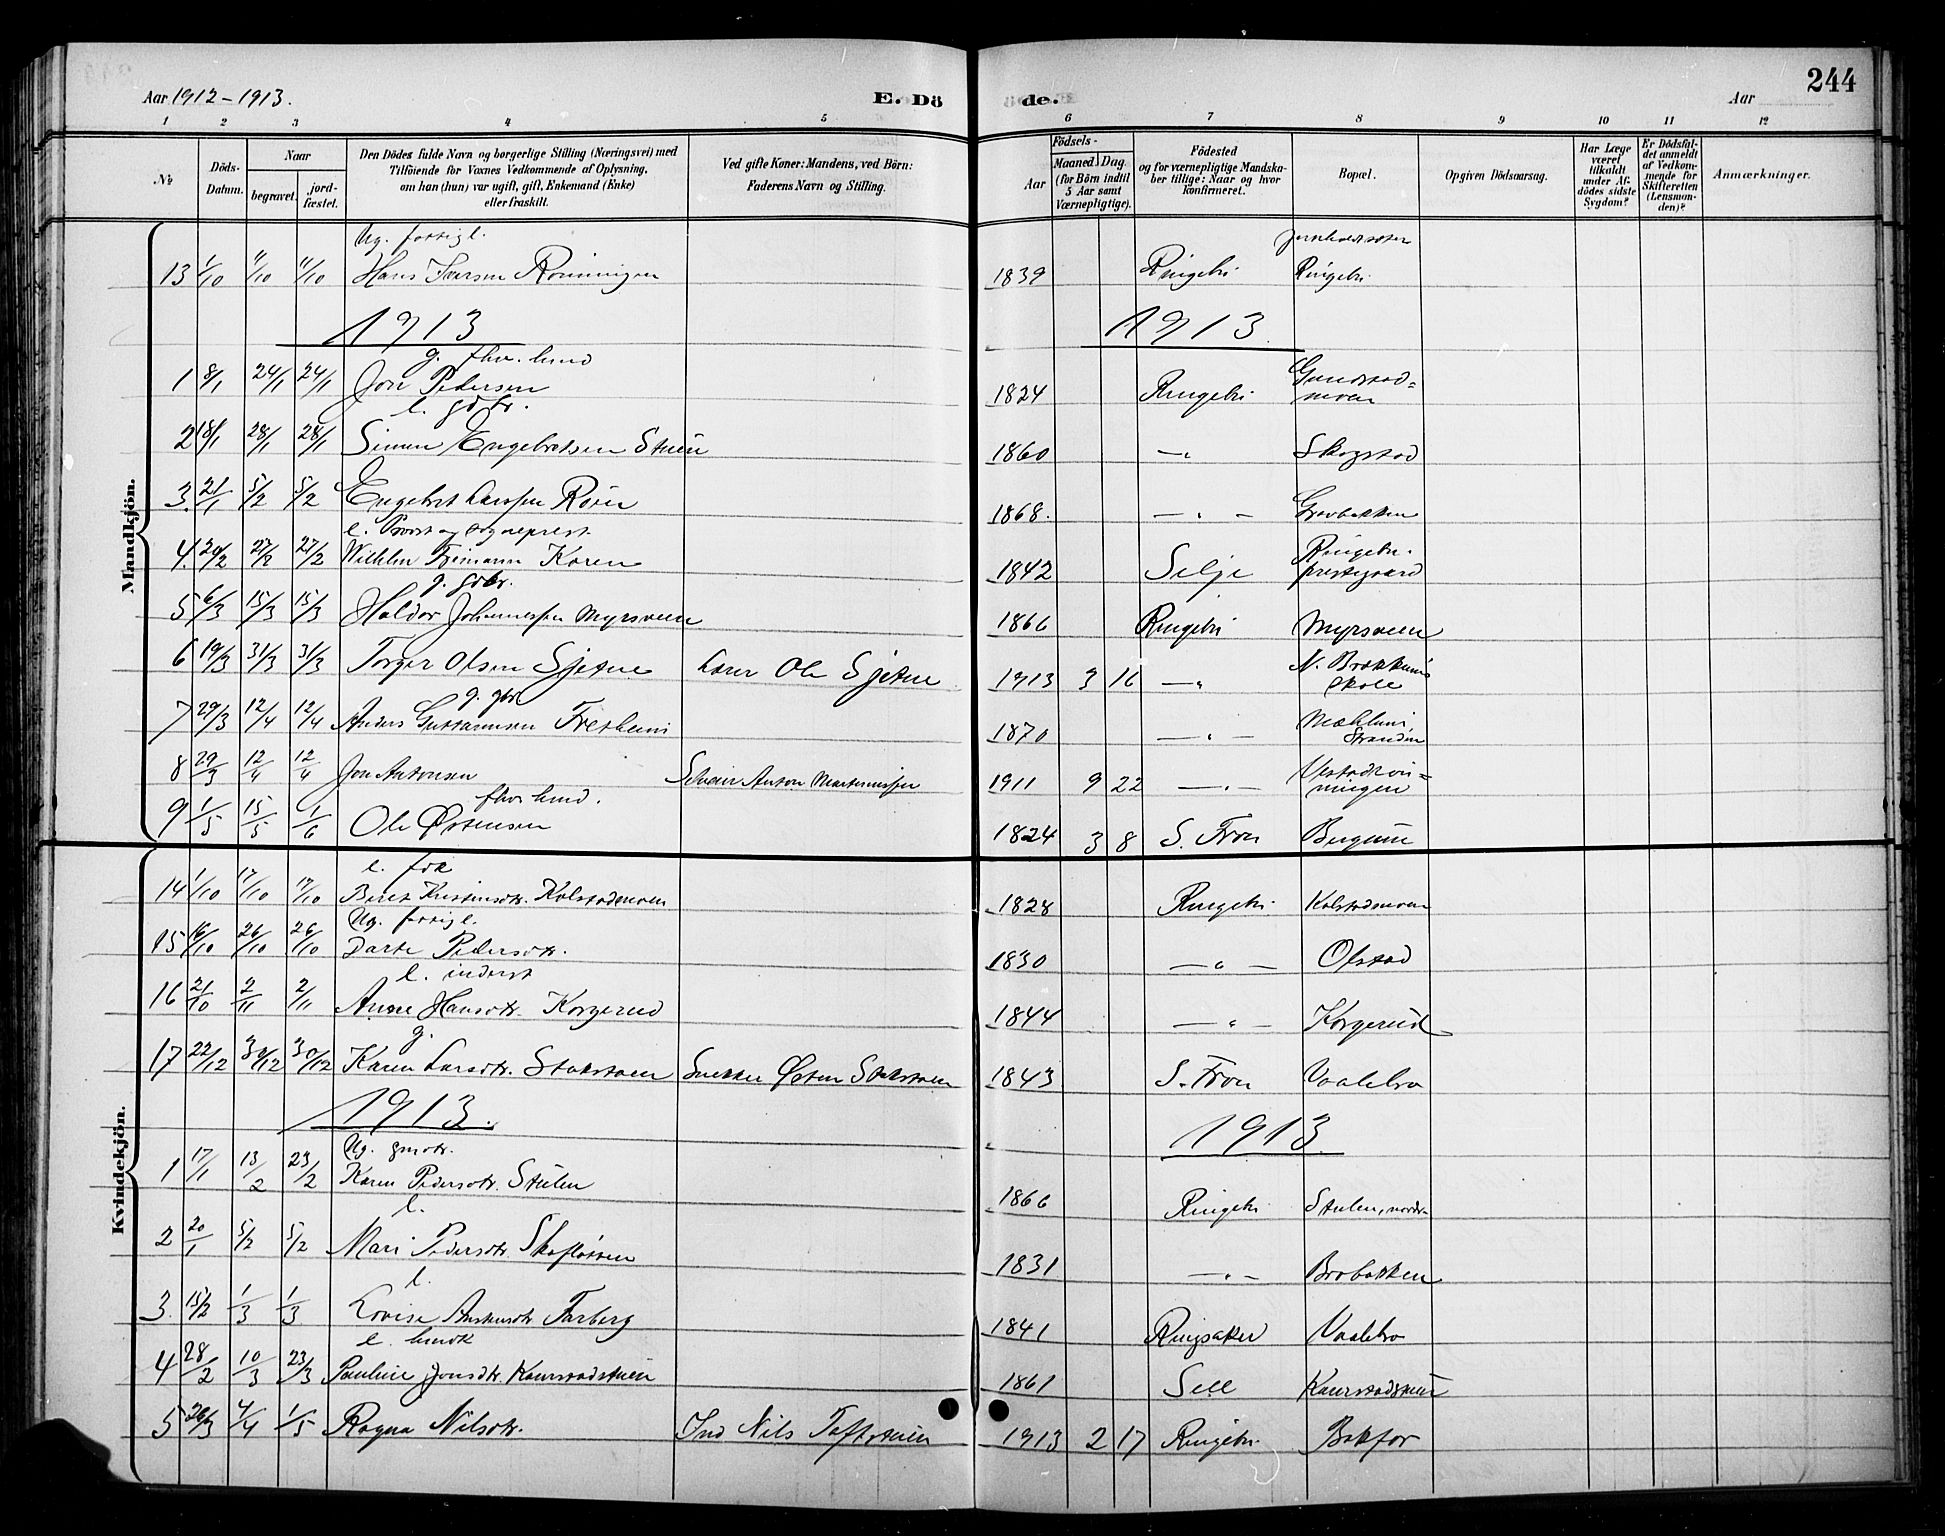 244
Aar 1912-1913.
E. Dö
de.
Aar
1 2 3 4 5 6 7 8 9 10 11 12
№
Döds-Datum.
Naar
begravet.
jord-fæstet.
Den Dödes fulde Navn og borgerlige Stilling (Næringsvei) med
Tilföiende for Voxnes Vedkommende af Oplysning,
om han (hun) var ugift, gift, Enkemand (Enke)
eller fraskilt.
Ved gifte Koner: Mandens, ved Börn:
Faderens Navn og Stilling.
Födsels-
Aar
Maaned Dag
(for Börn indtil
5 Aar samt
Værnepligtige).
Födested
og for værnepligtige Mandska-
ber tillige: Naar og hvor
konfirmeret.
Bopæl.
Opgiven Dödsaarsag.
Har Læge
været
tilkaldt
under Af-
dödes sidste
Sygdom?
Er Dödsfal-
det anmeldt
af Vedkom-
mende for
Skifteretten
(Lensman-
den)?
Anmærkninger.
Mandkjön.
Ug. fattigl.
13 1/10 11/10 11/10 Hans Iversen Rønningen 1839 Ringebu Ringebu
1913 1913
g. fhv. husmd
1 8/1 24/1 24/1 Jon Pedersen 1824 Ringebu
e. gdbr.
2 18/1 28/1 28/1 Simen Engebretsen Stuen 1860 —„ Skogstad
3 21/1 5/2 5/2 Engebret Larssen Røen 1868. —„— Grovbakken
e. Provst og sogneprest
4. 20/2 27/2 27/2 Wilhelm Frimann Koren 1842 Selje Ringebu prestegaard
g. gdbr.
5 6/3 15/3 15/3 Haldor Johannessen Myrsveen 1866 Ringebu Myrsveen
6 19/3 31/3 31/3 Torger Olsen Sjetne Lærer Ole Sjetne 1913 3 16 —„ N. Brækkens skole
g. gbr
7 29/3 12/4 12/4 Anders Fretheim 1870 —„—
8 29/3 12/4 12/4 Jon Antonsen Anton Martinussen 1911 9 22 —„—
fhv. husmd.
9 1/5 15/5 1/6 Ole Østensen 1824 3 8 S. Fron
Kvindekjön.
e. fdk
14 1/10 17/10 17/10 Berit Kristensdtr. Kolstadmoen 1828 Ringebu Kolstadmoen
Ug. fattigl.
15 16/10 26/10 26/10 Dorte Pedersdtr. 1830 —„— Olstad
e. inderst
16 21/10 2/11 2/11 Anne Hansdtr. Korgerud 1844 —„— Korgerud
g.
17 22/12 30/12 30/12 Karen Larsdtr. Stokstoen Snekker Østen Stokstoen 1843 S. Fron Vaalebro
1913. 1913.
Ug. gmdtr.
1 17/1 13/2 23/2 Karen Pedersdtr. Stulen 1866 Ringebu Stulen, nordr-
e.
2 20/1 5/2 5/2 Mari Pedersdtr. Skafløtten 1831 —„— Brobakken
e.
3. 15/2 1/3 1/3 Lovise Farberg 1841 Ringsaker Vaalebro
e. husmk
4 28/2 10/3 23/3 Pauline Jonsdtr. Kaurstadstuen 1861 Sell Kaurstadstuen
5 26/3 4/4 1/5 Ragna Nilsdtr. Ind Nils Toftestuen 1913 2 17 Ringebu Bakfor